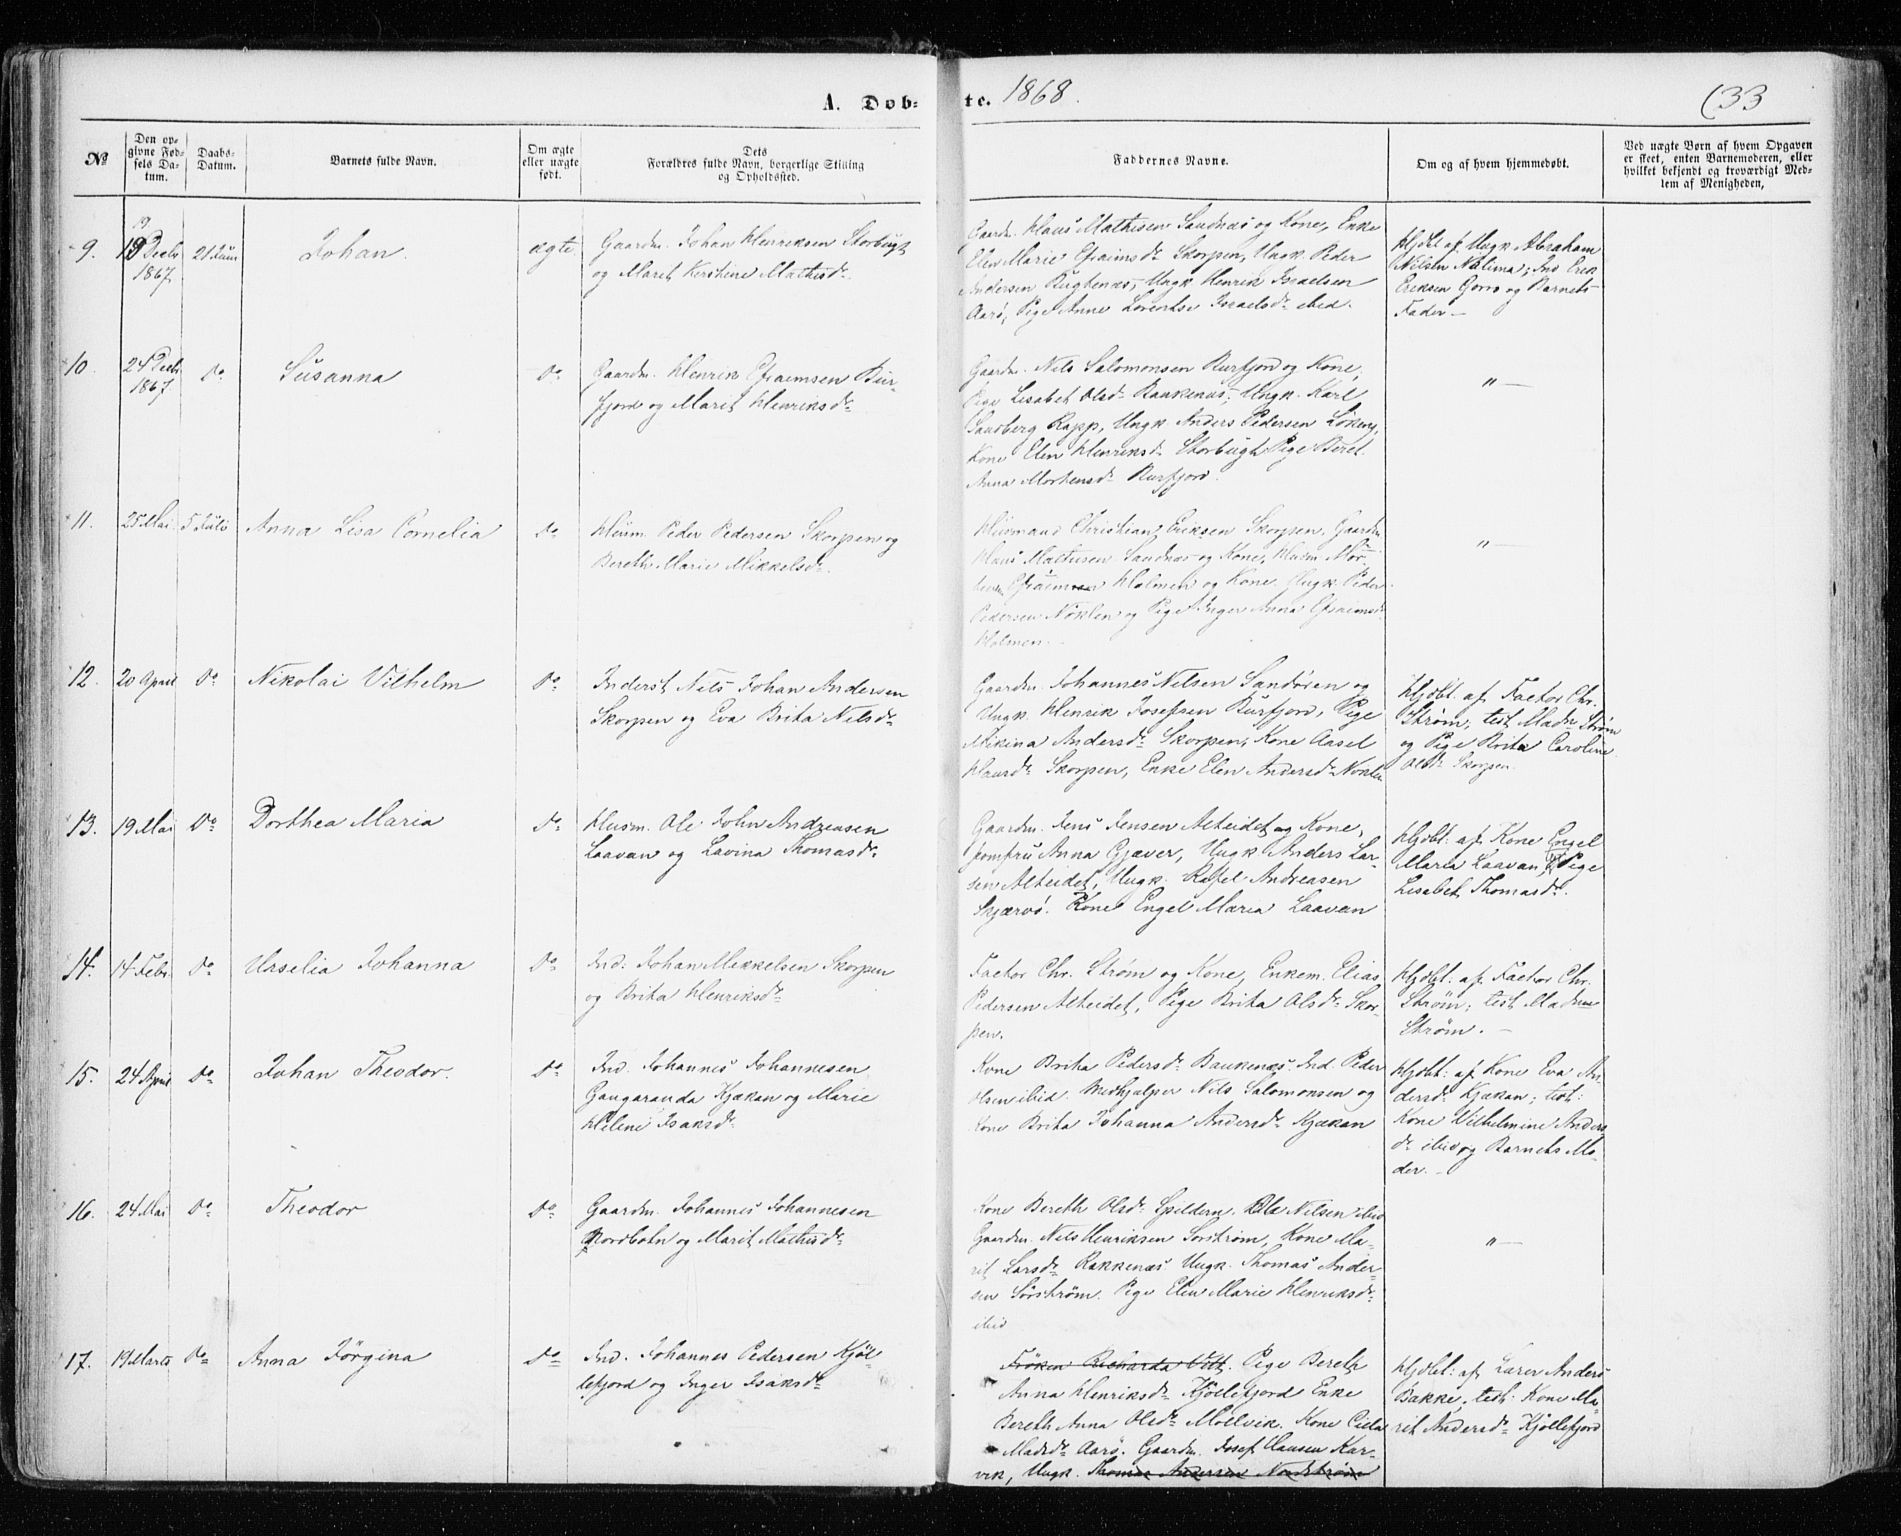 A. Døb-
te. 1868.
(33
№
Den op-
givne Fød-
sels Da-
tum.
Daabs-
Datum.
Barnets fulde Navn.
Om ægte
eller uægte
født.
Dets
Forældres fulde Navn, borgerlige Stilling
og Opholdssted.
Faddernes Navne.
Om og af hvem hjemmedøbt.
Ved uægte Børn af hvem Opgaven
er skeet, enten Barnemoderen, eller
hvilket bekjendt og troværdigt Med-
lem af Menigheden,
9.
19 Decbr
1867.
21 Juni
Johan.
ægte
Gaardm. Johan Henriksen Storbugt
og Maret Kirstine Mathisdr.
Gaardm. Hans Mathisen Sandnæs og Kone, Enke
Elen Marie Efraimsdr Skorpen, Ungk. Peder
Andersen Bugtenæs, Ungk. Henrik Israelsen
Aarø, Pige Anne Lorentse Israelsdr ibid.
Hjdbt af Ungk Abraham
Nilsen Nalima; Ind Erik
Eriksen Gorro og Barnets
Fader —
10.
24 Decbr
1867.
Do
Susanna
Do
Gaardm. Henrik Efraimsen Bur-
fjord og Marit Henriksdr
Gaardm. Nils Salomonsen Burfjord og Kone,
Pige Lisabet Olsdr Baukenæs, Ungk. Karl
Sandberg Rapp, Ungk Anders Pedersen Løkeng,
Kone Elen Henriksdr Storbugt Pige Beret
Anna Mortensdr Burfjord.
" —
11.
25 Mai
5 Juli
Anna Lisa Cornelia
Do
Husm. Peder Pedersen Skorpen og
Bereth Marie Mikkelsdr.
Husmand Christian Eriksen Skorpen, Gaardm
Hans Mathisen Sandnæs og Kone, Husm Mor-
ten Efraimsen Holmen og Kone. Ungk. Peder
Pedersen Nøklen og Pige Inger Anna Efraimsdr
Holmen. —
" —
12.
20 April
Do
Nikolai Vilhelm
Do
Inderst Nils Johan Andersen
Skorpen og Eva Brita Nilsdr
Gaardm. Johannes Nilsen Sandøren og
Ungk. Henrik Josefsen Burfjord, Pige
Nikina Andersdr Skorpen, Kone Aasel
Hansdr Skorpen, Enke Elen Andersdr Noklen
Hjdbt. af Factor Chr.
Strøm; test Madm Strøm
og Pige Brita Caroline
Olsdr Skorpen.
13.
19 Mai
Do
Dorthea Maria
Do
Husm. Ole John Andreasen
Laavan og Lavina Thomasdr.
Gaardm. Jens Jensen Alteidet og Kone,
Jomfru Anna Gjæver, Ungk Anders Lar-
sen Alteidet, Ungk. Rafel Andreasen
Skjærvø. Kone Engel Maria Laavan
Hjdbt: af Kone Engel
Maria Laavan, Pige
Lisabet Thomasdr.
14.
14 Febr.
Do
Urselia Johanna
Do
Ind: Johan Mikkelsen Skorpen
og Brita Henriksdr
Factor Chr. Strøm og Kone, Enkem. Elias
Pedersen Alteidet, Pige Brita Olsdr Skor-
pen.
Hjdbt: af Factor Chr.
Strøm; test Madme
Strøm. —
15.
24 April
Do
Johan Theodor.
Do
Ind. Johannes Johannesen
Gangaranda Kjækan og Marie
Helene Isaksdr
Kone Brita Pedersdr Baukenæs, Ind. Peder
Olsen ibid. Medhjælper Nils Salomonsen og
Kone Brita Johanna Andersdr Kjækan
Hjdbt: af Kone Eva An-
dersdr Kjækan; test:
Kone Vilhelmine Anders
dr ibid og Barnets Mo-
der. —
16.
24 Mai
Do
Theodor
Do
Gaardm. Johannes Johannesen
Nordbotn og Marit Mathisdr
Kone Bereth Olsdr Spildern. Ole Nilsen ibid
Gaardm. Nils Henriksen Sørstrøm, Kone Ma-
rit Larsdr Rakkenæs. Ungk. Thomas Ander-
sen Sørstrøm. Pige Elen Marie Henriksdr
ibid
" —
17.
19 Marts
Do
Anna Jörgina
Do
Ind. Johannes Pedersen Kjöl-
lefjord og Inger Isaksdr
Frøken Richarda Vitt. Pige Bereth
Anna Henriksdr Kjöllefjord Enke
Bereth Anna Olsdr Mollvik. Kone
Madsdr Aarø. Gaardm. Josef Hansen Kar-
vik, Ungk. Thomas Andersen Nordstrøm
Hjdbt: af Lærer Anders
Bakke; test: Kone Ma-
rit Andersdr Kjöllefjord